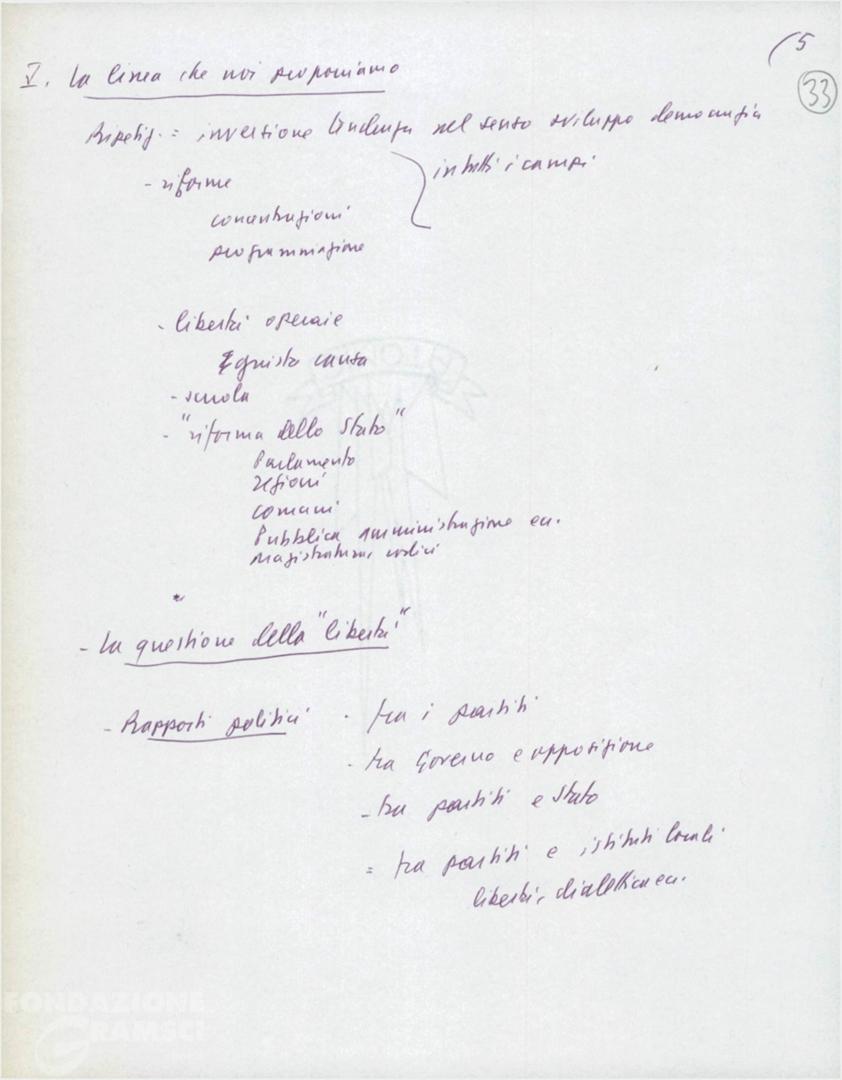 (5
33
V. La linea che noi proponiamo
Ripetiz. = inversione tendenza nel senso sviluppo democrazia
in tutti i campi
- riforme
concentrazioni
programmazione
- libertà operaie
giusta causa
- scuola
- "riforma dello Stato"
Parlamento
regioni
comuni
Pubblica amministrazione ecc.
Magistratura, codici
- La questione della "libertà"
- Rapporti politici
- tra i partiti
- tra Governo e opposizione
- tra partiti e Stato
= tra partiti e istituti locali
libertà, dialettica ecc.
FONDAZIONE
GRAMSCI